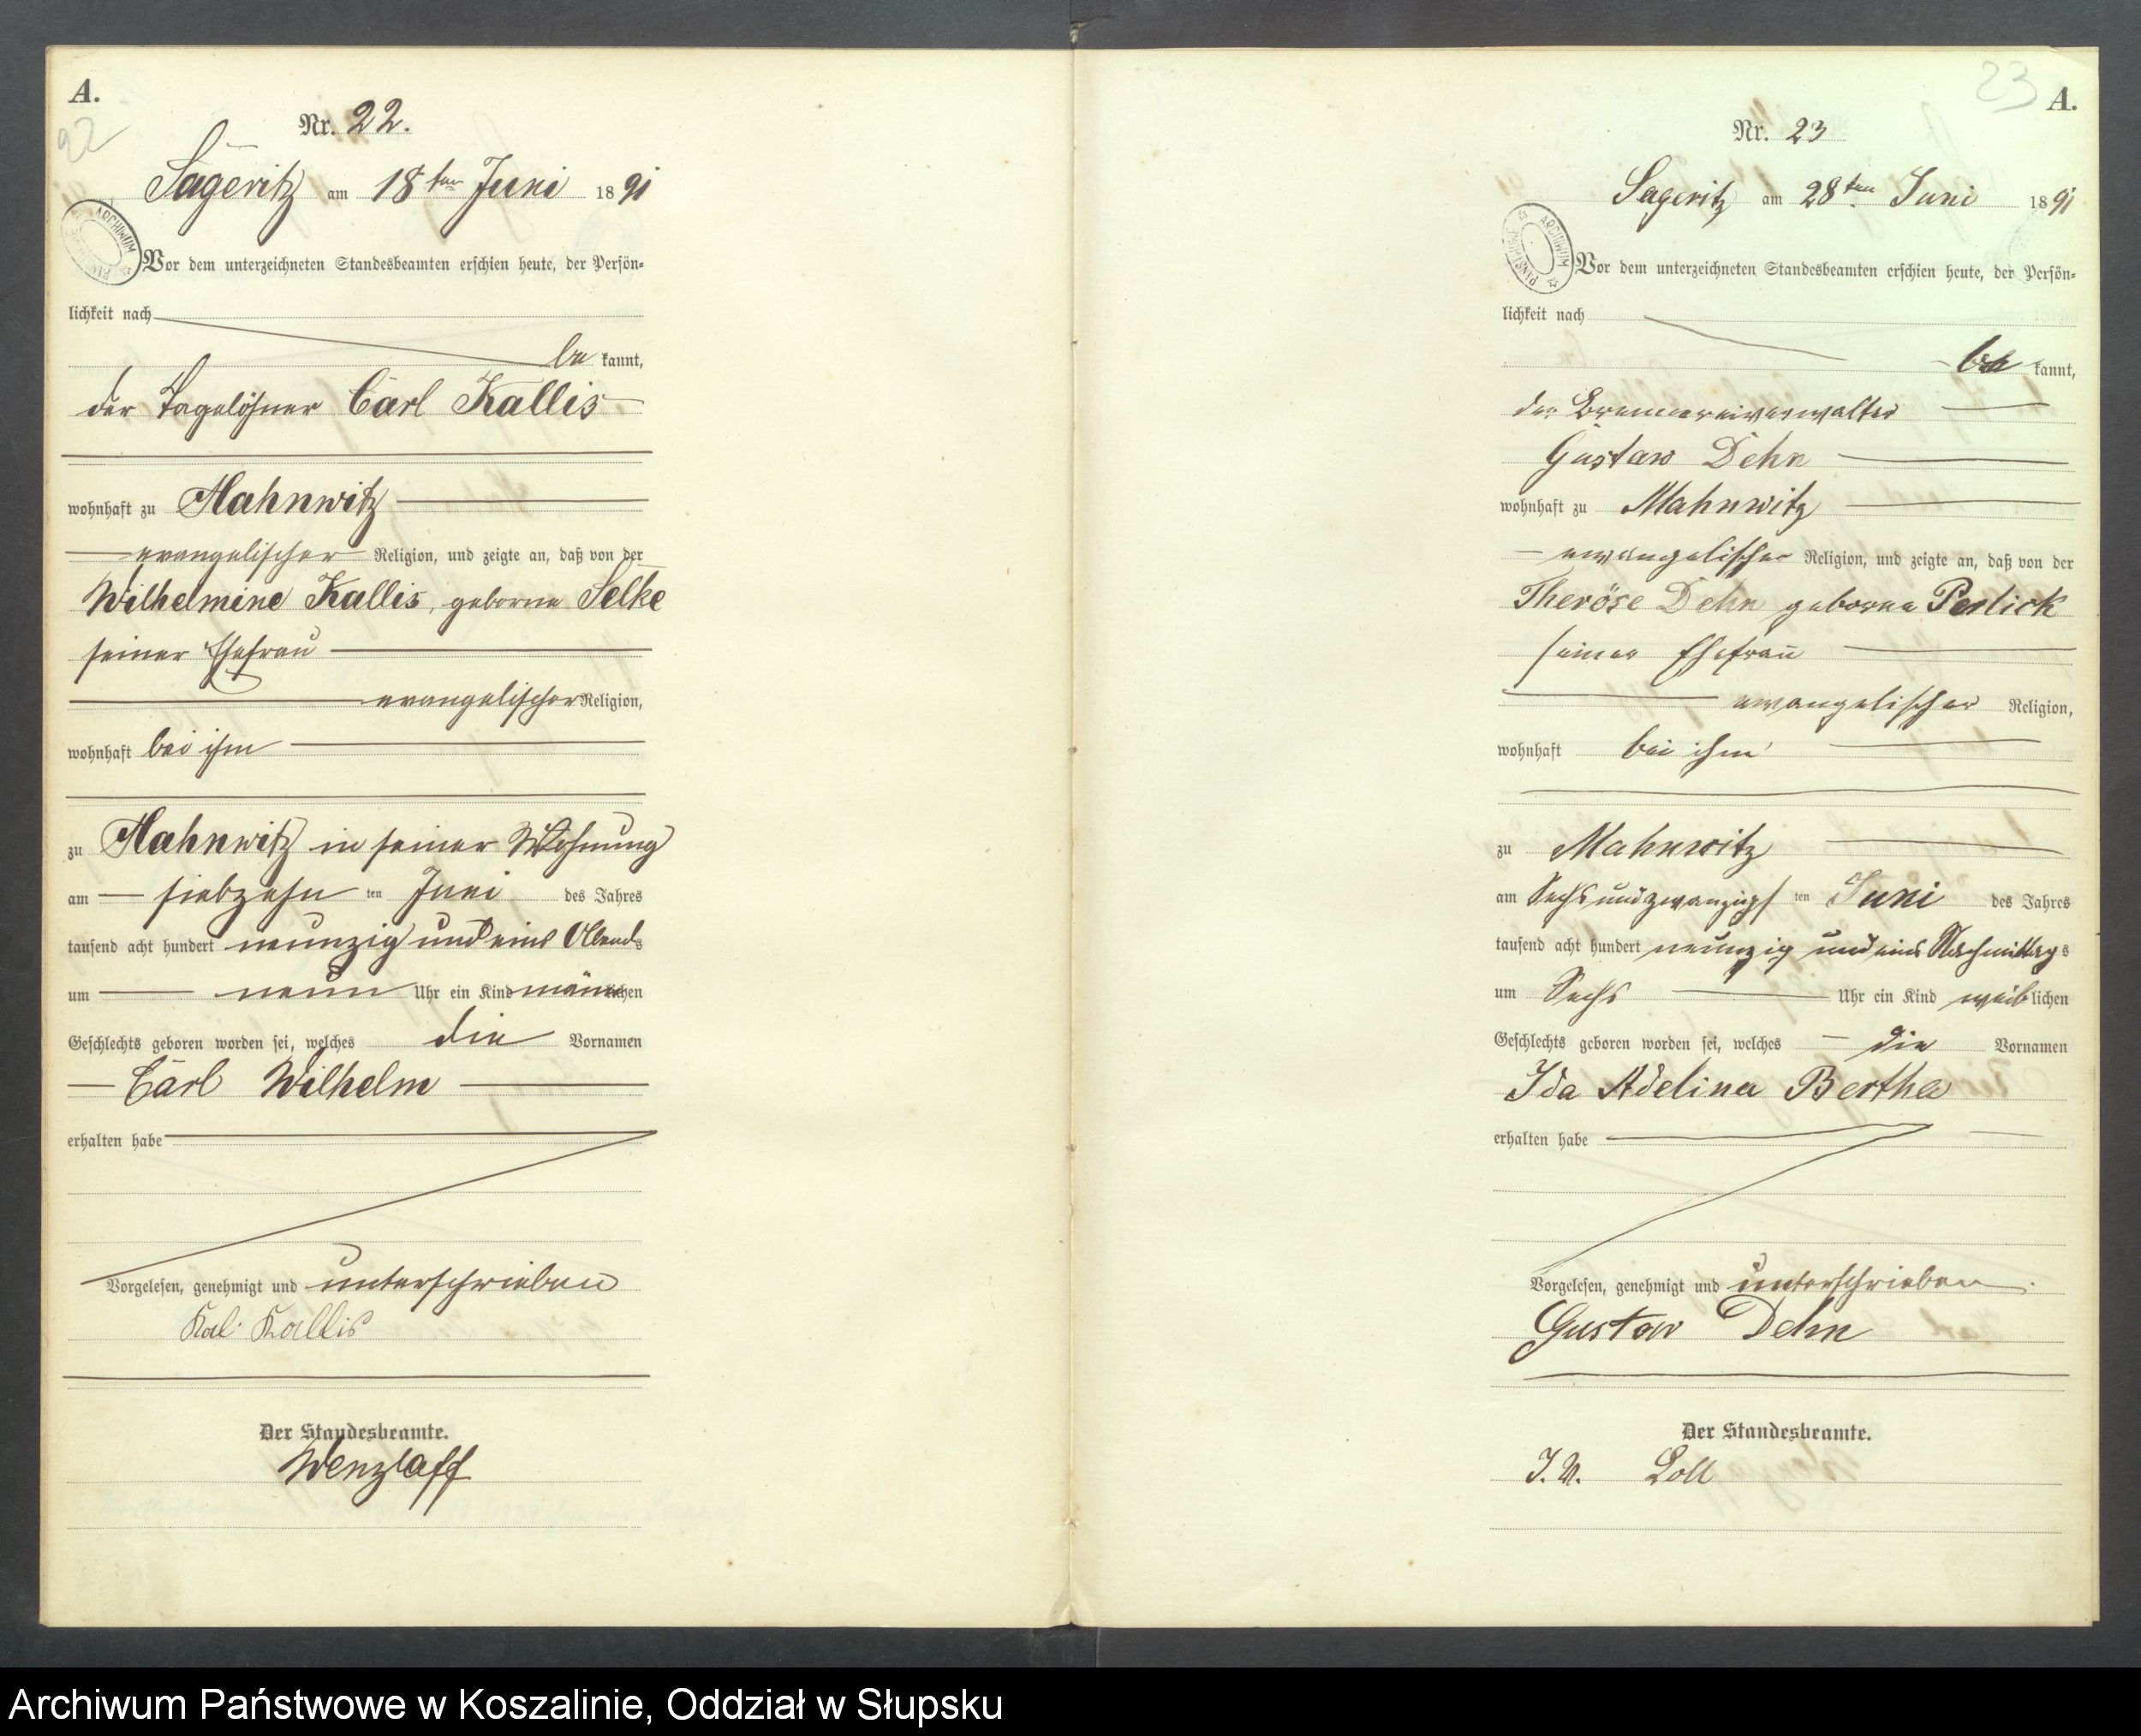 A.
22
Nr. 22.
Sageritz am 18ten Juni 1891
Vor dem unterzeichneten Standesbeamten erschien heute, der Persön=
lichkeit nach
be kannt,
der Tagelöhner Carl Kallis
wohnhaft zu Mahnwitz
evangelischer Religion, und zeigte an, daß von der
Wilhelmine Kallis, geborne Selke
seiner Ehefrau
evangelischer Religion,
wohnhaft bei ihm
zu Mahnwitz in seiner Wohnung
am siebzehn ten Juni des Jahres
tausend acht hundert neunzig und eins Abends
um neun Uhr ein Kind männlichen
Geschlechts geboren worden sei, welches die Vornamen
Carl Wilhelm
erhalten habe
Vorgelesen, genehmigt und unterschrieben
Karl Kallis
Der Standesbeamte.
Wenzlaff
23
A.
Nr. 23
Sageritz am 28ten Juni 1891
ARCHIWUM PAŃSTWOWE
Vor dem unterzeichneten Standesbeamten erschien heute, der Persön=
lichkeit nach
be kannt,
der Brennereiverwalter
Gustav Dehn
wohnhaft zu Mahnwitz
evangelischer Religion, und zeigte an, daß von der
Theröse Dehn geborne Perlick
seiner Ehefrau
evangelischer Religion,
wohnhaft bei ihm
zu Mahnwitz
am Sechs und zwanzigs ten Juni des Jahres
tausend acht hundert neunzig und eins Nachmittags
um Sechs Uhr ein Kind weiblichen
Geschlechts geboren worden sei, welches die Vornamen
Ida Adelina Bertha
erhalten habe
Vorgelesen, genehmigt und unterschrieben.
Gustav Dehn
Der Standesbeamte.
I. V. Loll
Archiwum Państwowe w Koszalinie, Oddział w Słupsku